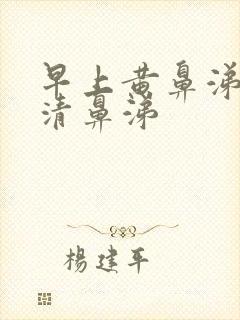 早上黄鼻涕
清鼻涕
楊建平